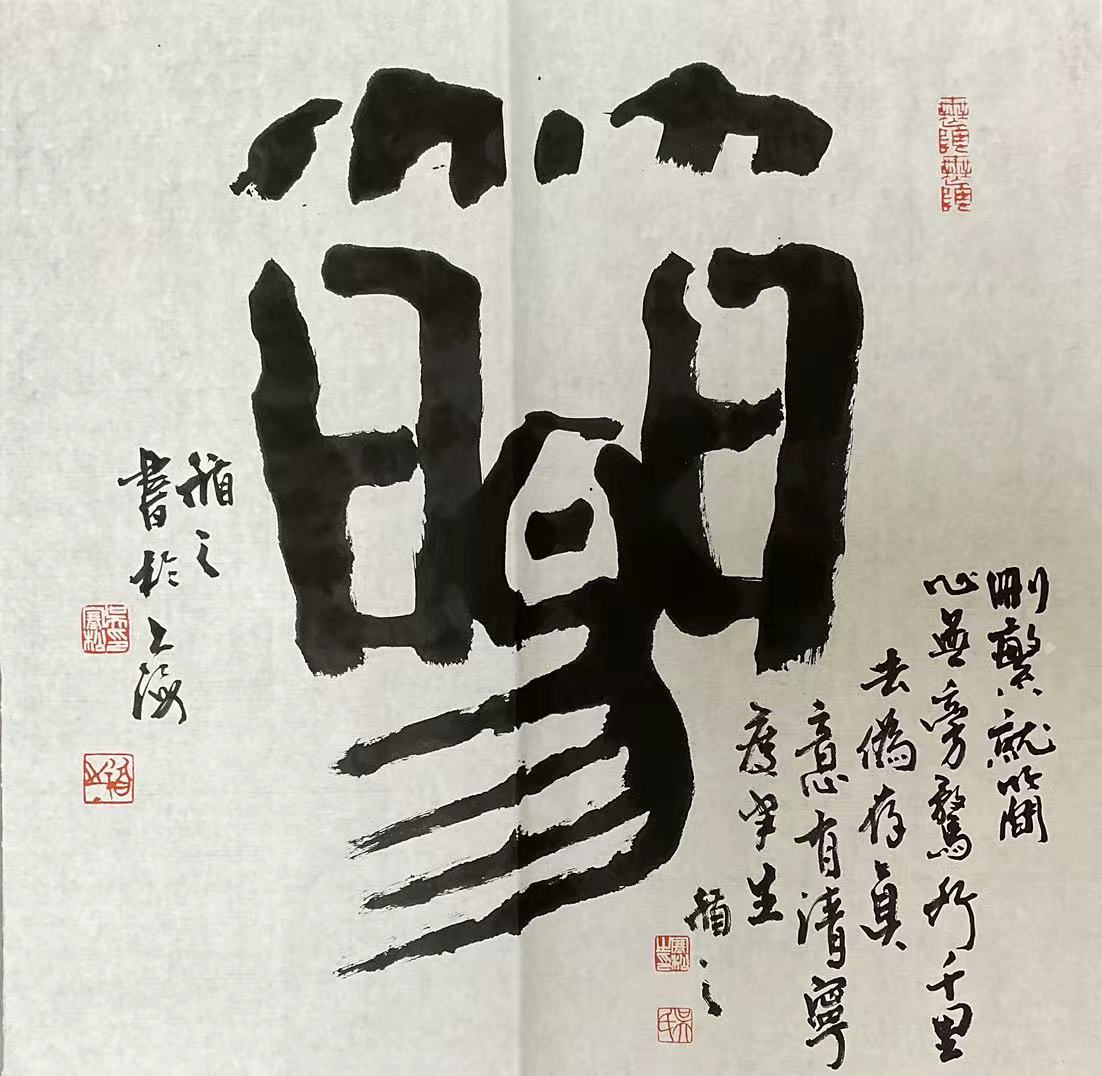 簡易
刪繁就簡
心無旁騖行千里
去偽存真
意有清寧
度半生
之
之
書於上海